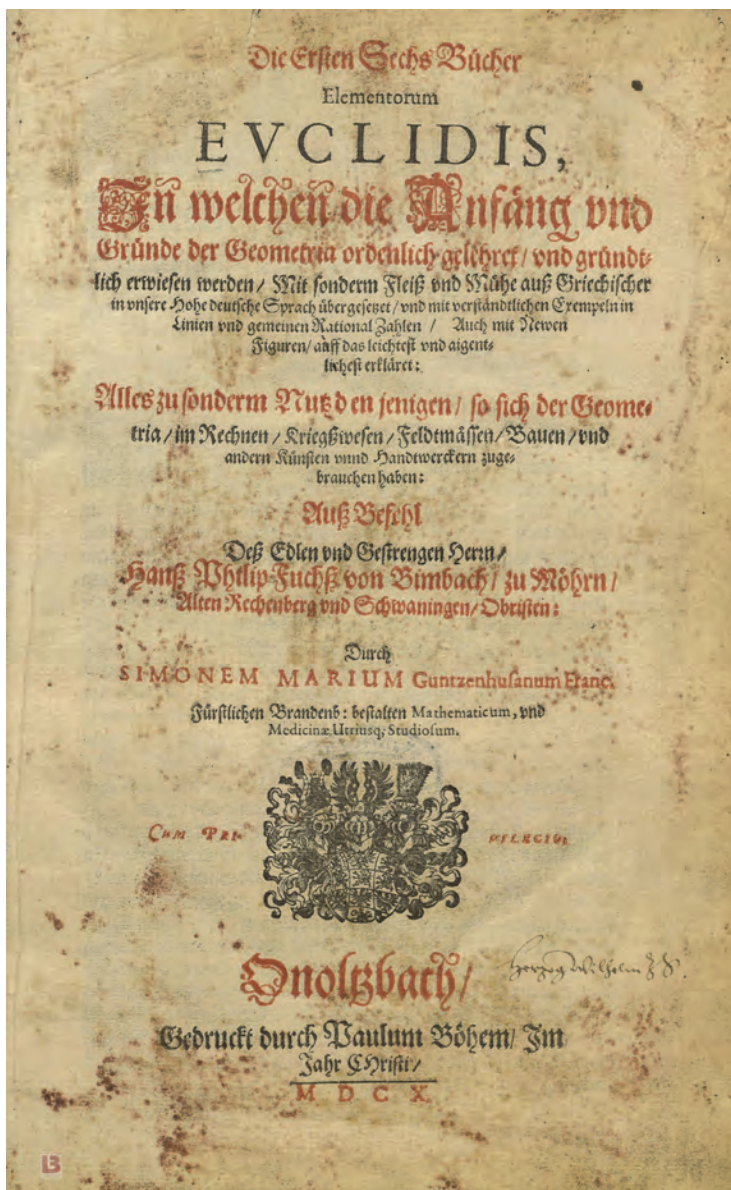 Die Ersten Sechs Bücher
Elementorum
EVCLIDIS,
In welchen die Anfäng vnd
Gründe der Geometria ordenlich gelehret / vnd gründt-
lich erwiesen werden / Mit sonderm Fleiß vnd Mühe auß Griechischer
in vnsere Hohe deutsche Sprach übergesetzet / vnd mit verständtlichen Exempeln in
Linien vnd gemeinen Rational Zahlen / Auch mit Newen
Figuren / auff das leichtest vnd aigent-
lichest erkläret:
Alles zu sonderm Nutz den jenigen / so sich der Geome-
tria / im Rechnen / Kriegßwesen / Feldtmässen / Bauen / vnd
andern Künsten vnnd Handtwerckern zuge-
brauchen haben:
Auß Befehl
Deß Edlen vnd Gestrengen Herrn /
Hanß Philip Fuchß von Bimbach / zu Möhrn /
Alten Rechenberg vnd Schwaningen / Obristen:
Durch
SIMONEM MARIUM Guntzenhusanum Franc.
Fürstlichen Brandenb: bestalten Mathematicum, vnd
Medicinæ Utriusq; Studiosum.
CUM PRI- VILEGIO,
Onoltzbach /
Herzog Wilhelm
Gedruckt durch Paulum Böhem / Im
Jahr CHristi /
M D C X.